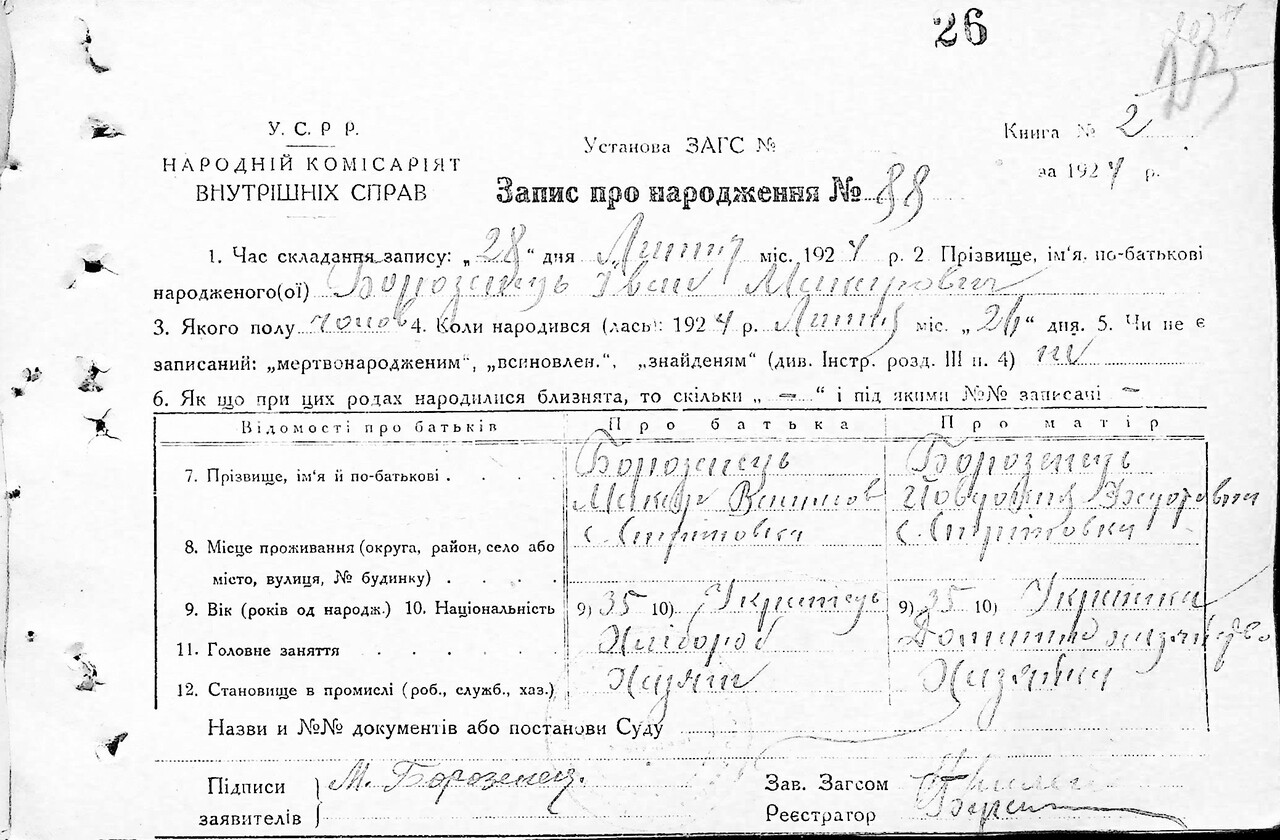 26
У. С. Р Р.
НАРОДНІЙ КОМІСАРІЯТ
ВНУТРІШНІХ СПРАВ
Установа ЗАГС №
Запис про народження № 88
Книга № 2
за 1924 р.
1. Час складання запису: „28“ дня міс. 1924 р. 2 Прізвище, ім'я, по-батькові
народженого(ої) Борозенець Іван Макарович
3. Якого полу чолов 4. Коли народився (лась): 1924 р. міс. „26“ дня. 5. Чи не є
записаний: „мертвонародженим“, „всиновлен.“, „знайденям“ (див. Інстр. розд. III п. 4) ні
6. Як що при цих родах народилися близнята, то скільки „ — “ і під якими №№ записачі —
Відомості про батьків Про батька Про матір
7. Прізвище, ім'я й по-батькові . . . . Борозенець Борозенець
Макар
8. Місце проживання (округа, район, село або
місто, вулиця, № будинку) . . . .
9. Вік (років од народж.) 10. Національність 9) 35 10) Украінець 9) 35 10) Украінка
11. Головне заняття . . . . . Хлібороб
12. Становище в промислі (роб., служб., хаз.) Хазяін Хазяйка
Назви и №№ документів або постанови Суду
Підписи М. Борозенец. Зав. Загсом
заявителів Реєстратор